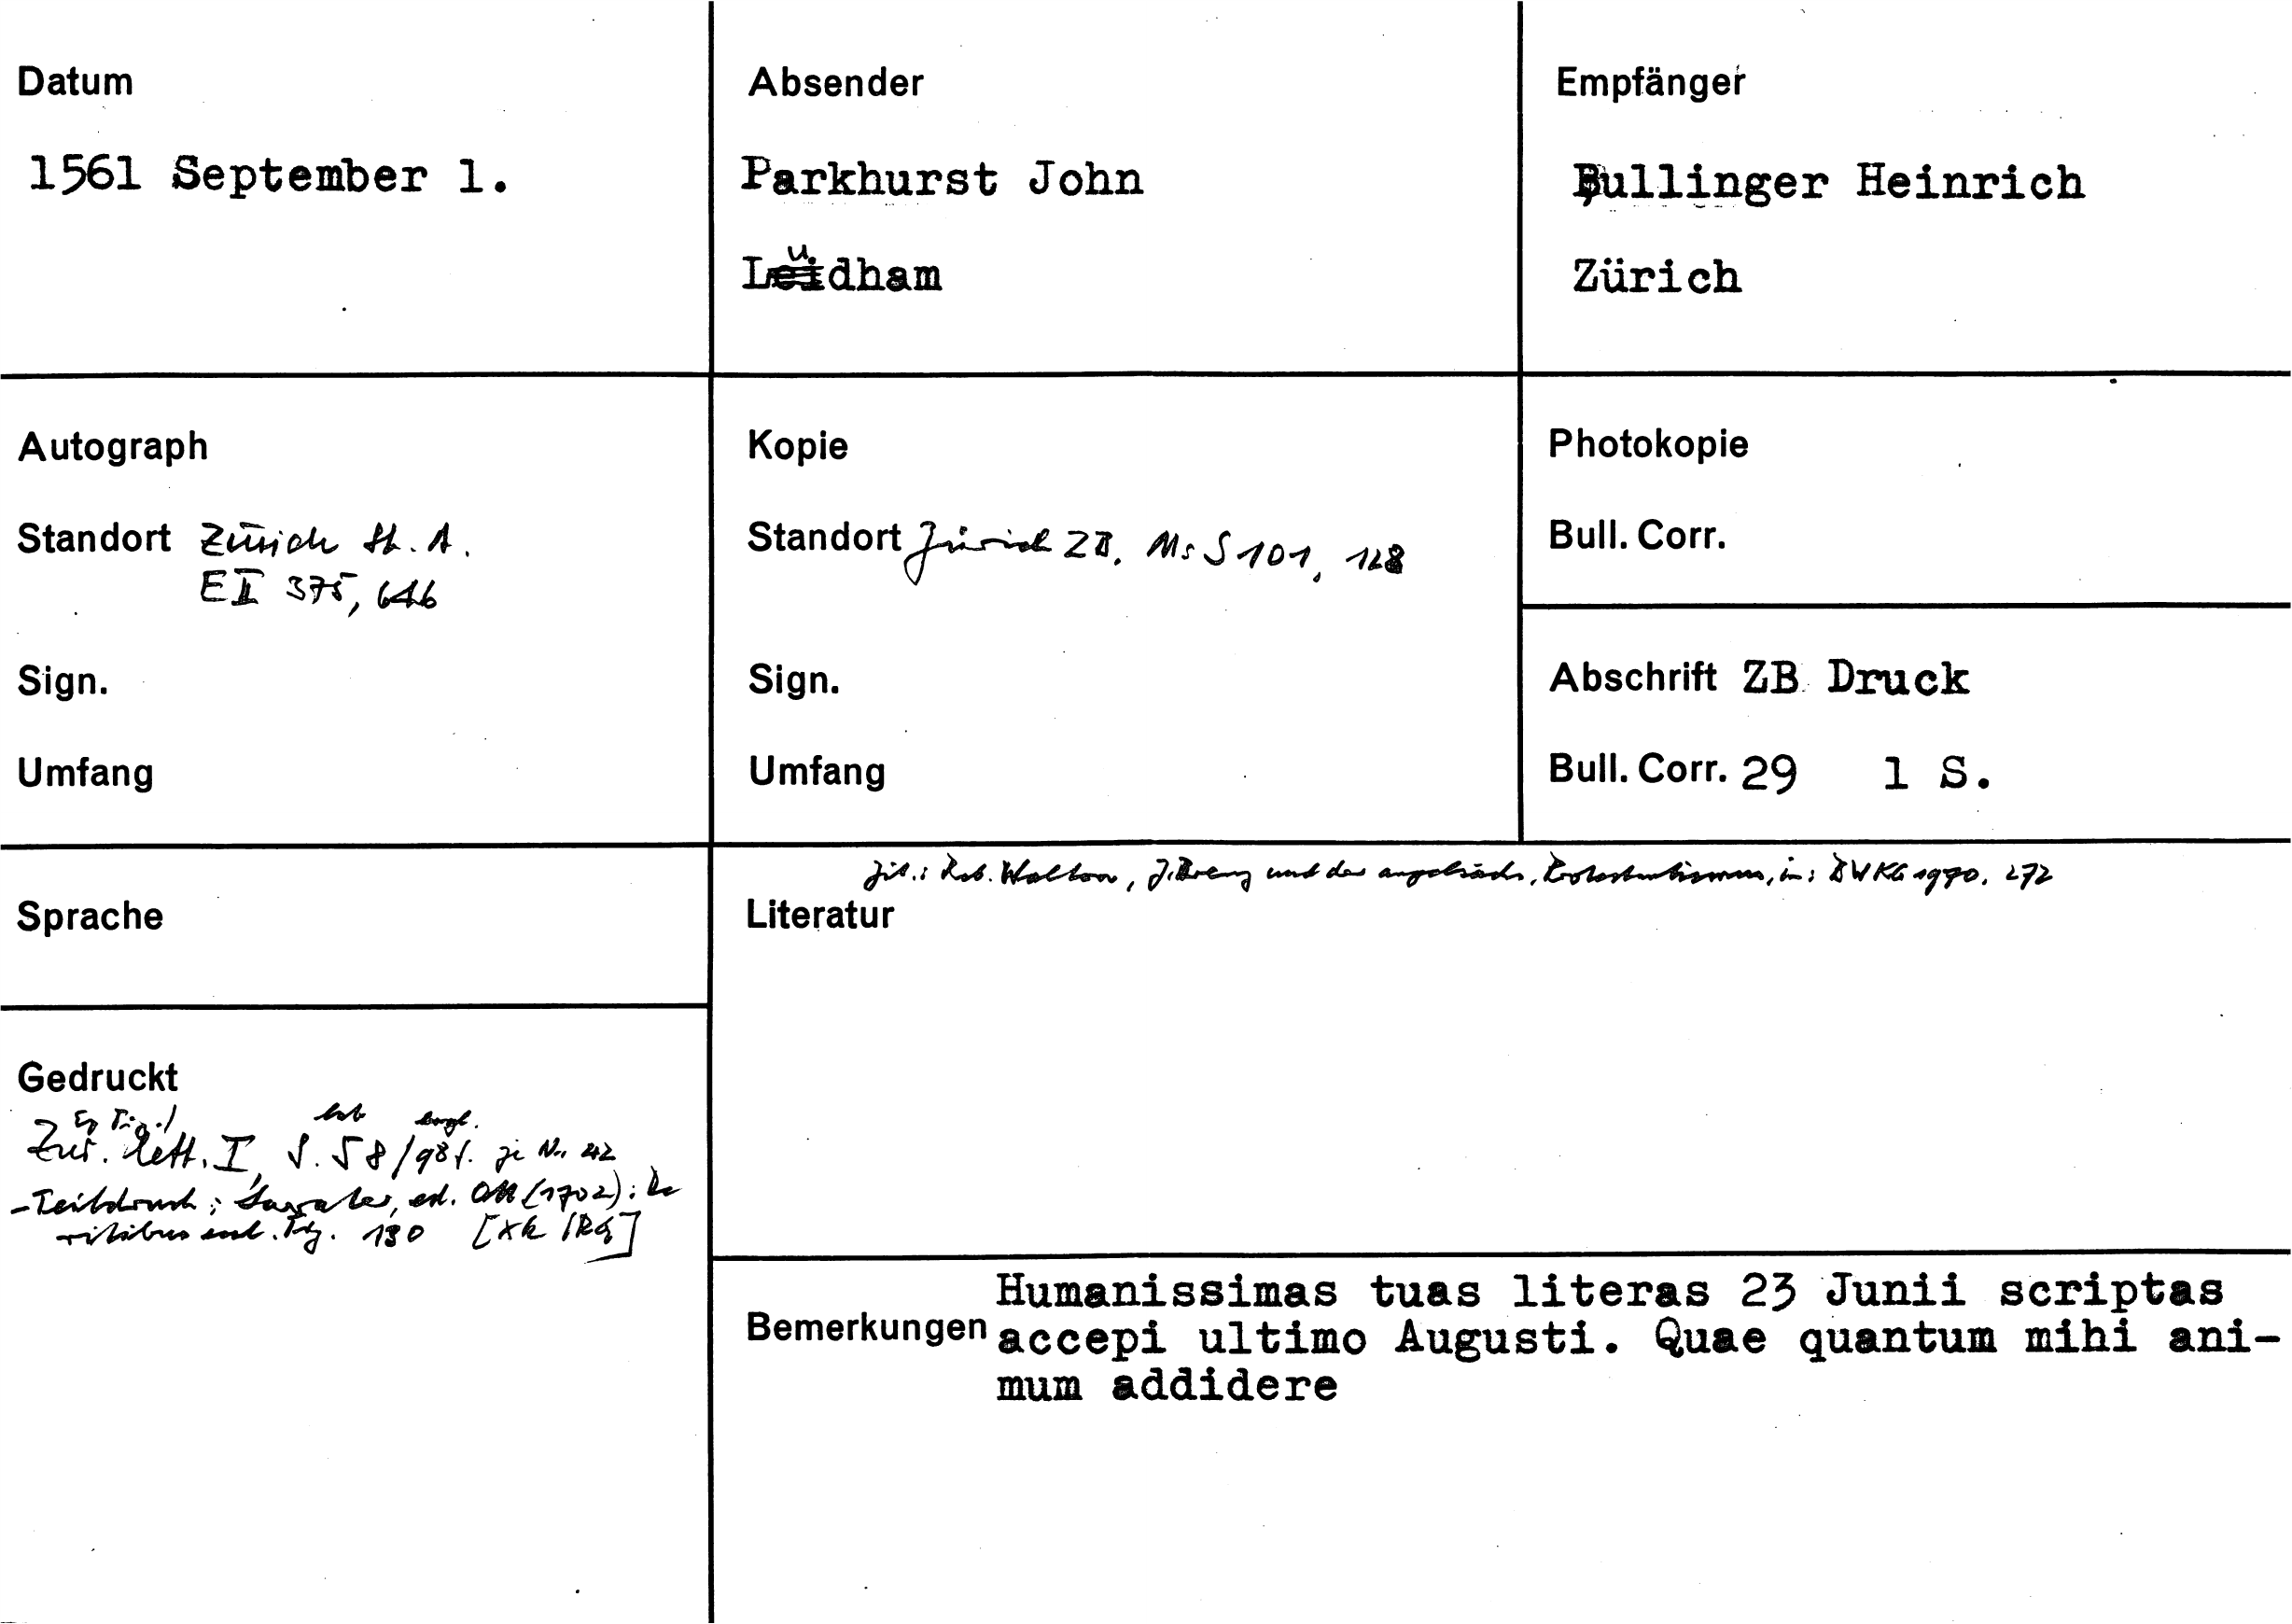 Datum
1561 September 1.
Absender
Parkhurst John
Ludham
Empfänger
Bullinger Heinrich
Zürich
Autograph
Standort Zürich St. A.
E II 375, 646
Sign.
Umfang
Kopie
Standort Zürich ZB, Ms S 101, 128
Sign.
Umfang
Photokopie
Bull. Corr.
Abschrift ZB Druck
Bull. Corr. 29 1 S.
Sprache
Zit.: Rob. Walton, J. Brenz und der angelsächs. Protestantismus, in: BWKG 1970, 272
Literatur
Gedruckt
Ep Tig. / lat engl.
Zur. Lett. I, S. 58 / 98 f. je Nr. 42
- Teildruck: Lavater, ed. Ott (1702): De
ritibus eccl. Tig. 130
Bemerkungen
Humanissimas tuas literas 23 Junii scriptas
accepi ultimo Augusti. Quae quantum mihi ani-
mum addidere